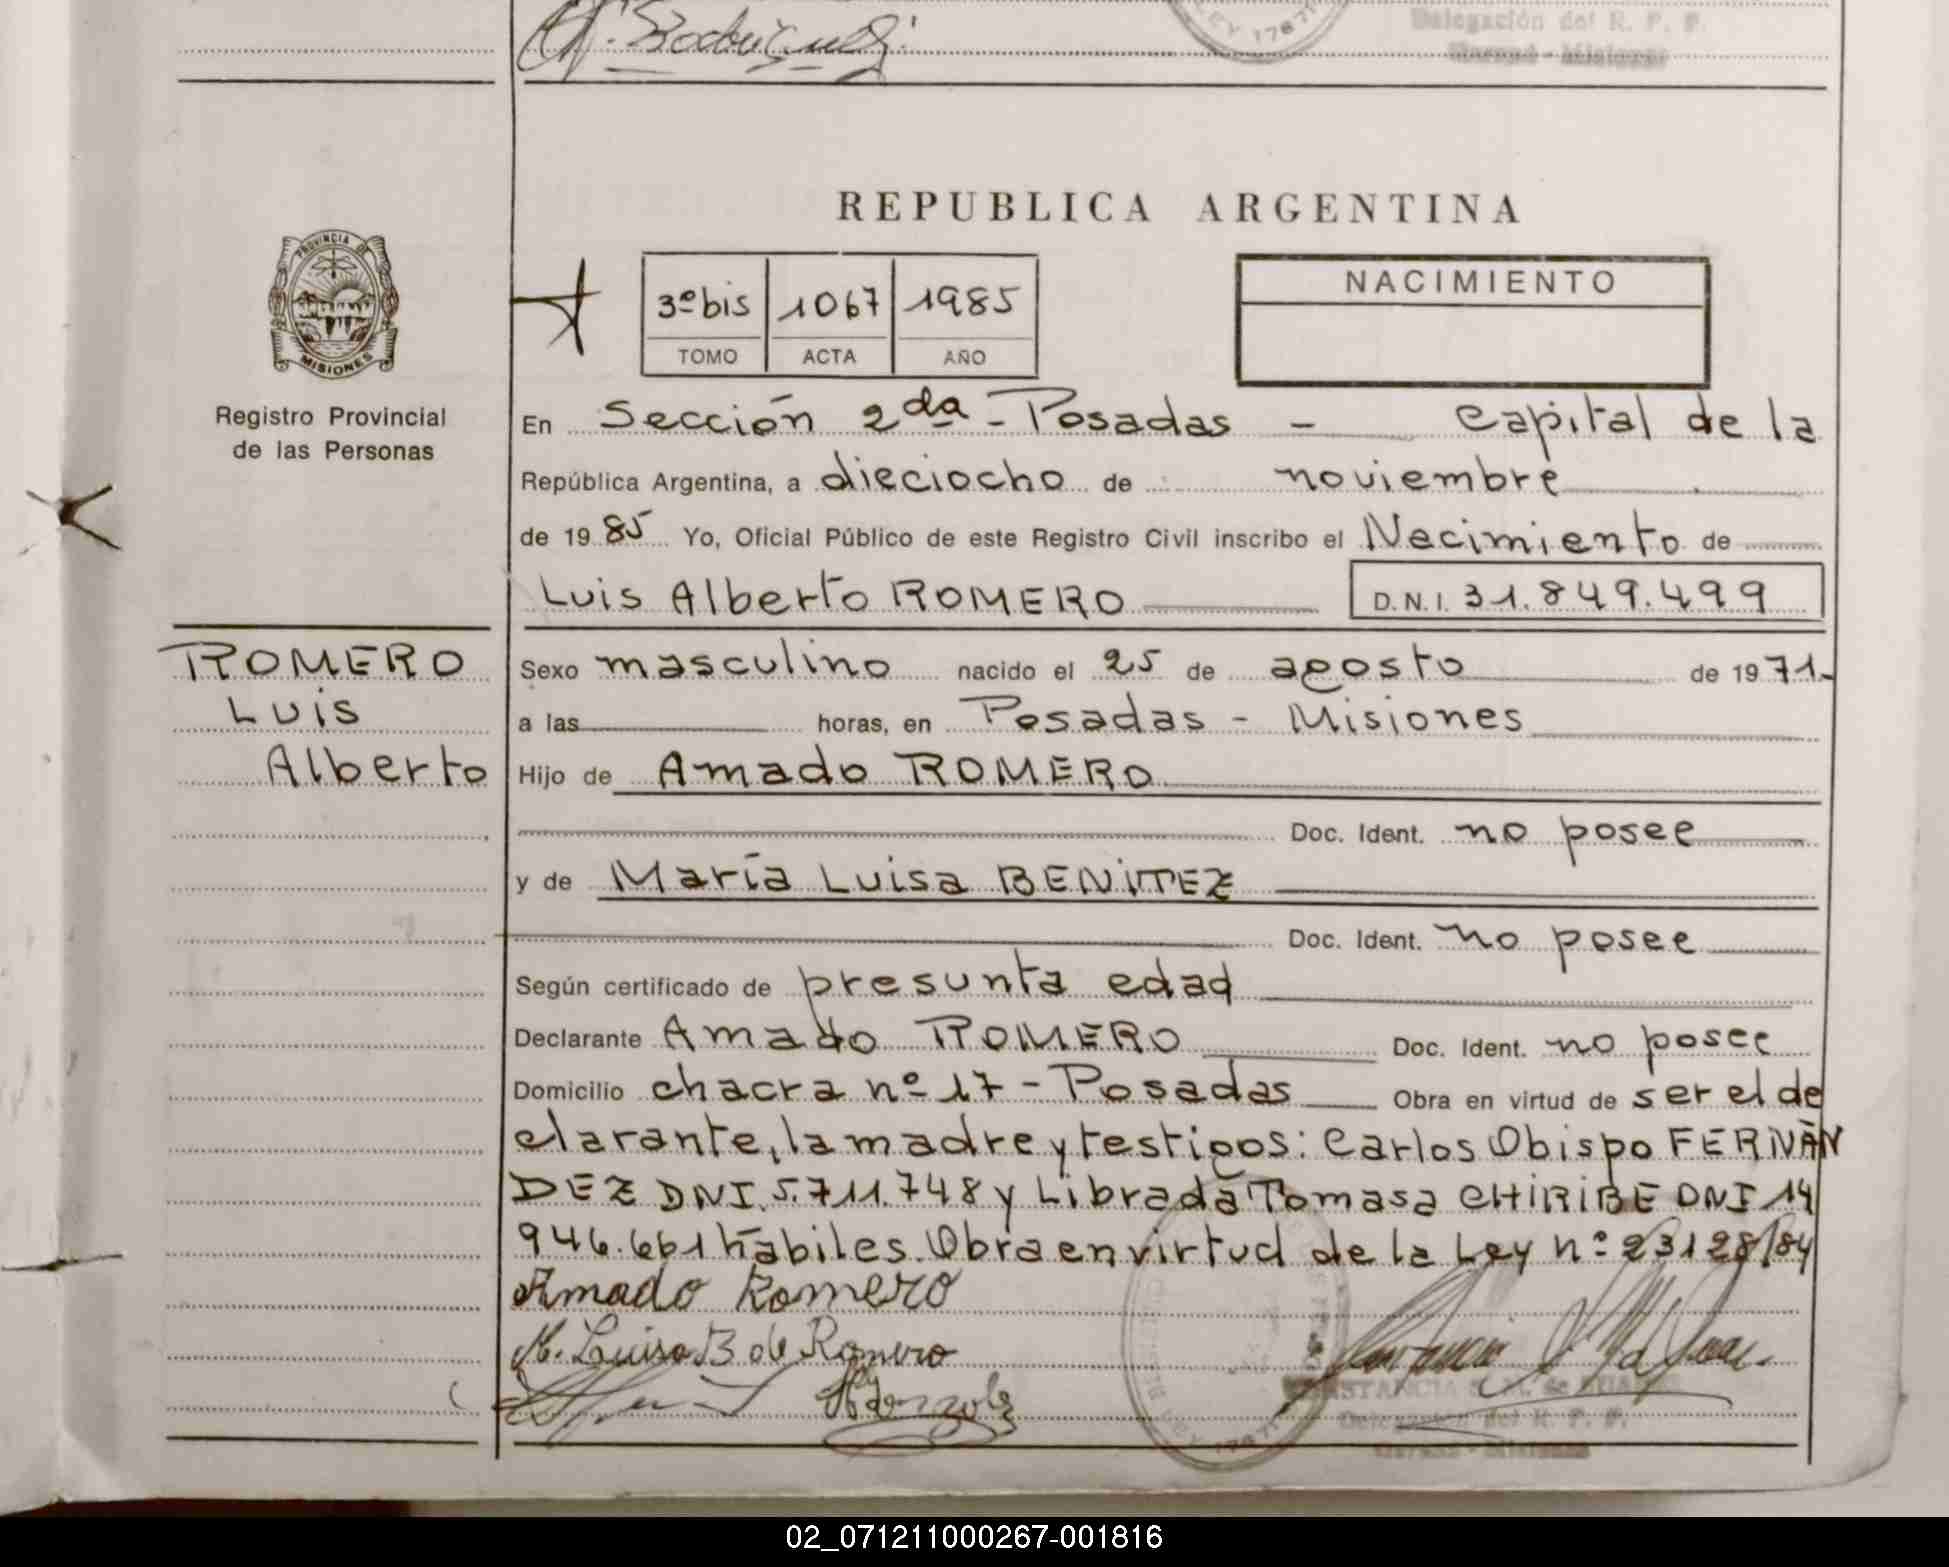 Delegación del R. P. P.
REPUBLICA ARGENTINA
PROVINCIA DE
MISIONES
Registro Provincial
de las Personas
3º bis 1067 1985
TOMO ACTA AÑO
NACIMIENTO
En Sección 2da - Posadas - Capital de la
República Argentina, a dieciocho de noviembre
de 1985 Yo, Oficial Público de este Registro Civil inscribo el Nacimiento de
Luis Alberto ROMERO D.N.I. 31.849.499
ROMERO
Luis
Alberto
Sexo masculino nacido el 25 de agosto de 1971.
a las horas, en Posadas - Misiones
Hijo de Amado ROMERO
Doc. Ident. no posee
y de María Luisa BENITEZ
Doc. Ident. no posee
Según certificado de presunta edad
Declarante Amado ROMERO Doc. Ident. no posee
Domicilio chacra nº 17 - Posadas Obra en virtud de ser el de
clarante, la madre y testigos: Carlos Obispo FERNÀN
DEZ DNI. 5.711.748 y Librada Tomasa CHIRIBE DNI 14
946.661 hábiles. Obra en virtud de la Ley nº 23128/84
Amado Romero
M. Luisa B de Romero
Delegación del R. P. P.
02_071211000267-001816